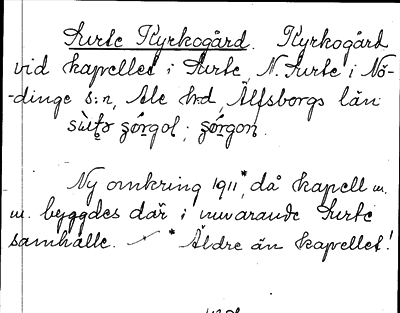 Surte Kyrkogård. Kyrkogård
vid kapellet i Surte, N. Surte i Nö-
-dinge s:n, Ale h:d, Älfsborgs län
Ny omkring 1911*, då kapell m.
m. byggdes där i nuvarande Surte
samhälle. * Äldre än kapellet!